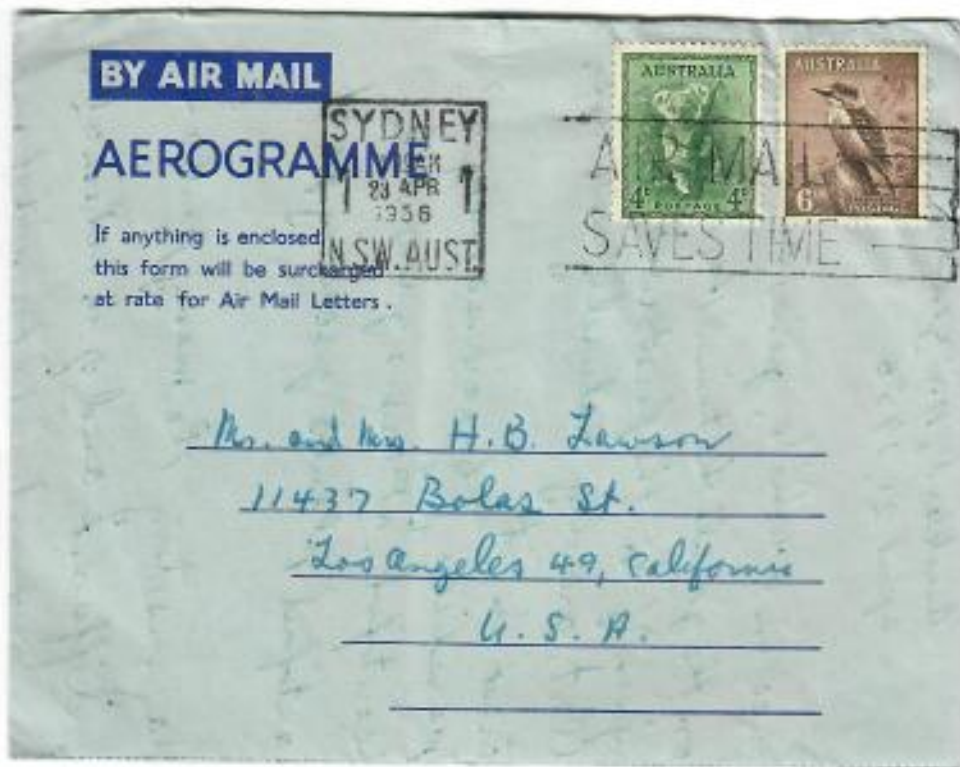 BY AIR MAIL
AEROGRAMME
If anything is enclosed
this form will be surcharged
at rate for Air Mail Letters.
SYDNEY
23 APR
1956
N.S.W. AUST.
1 1
AUSTRALIA
4D POSTAGE 4D
AUSTRALIA
6D
AIR MAIL
SAVES TIME
Mr. and Mrs. H. B. Lawson
11437 Bolas St.
Los Angeles 49, California
U. S. A.